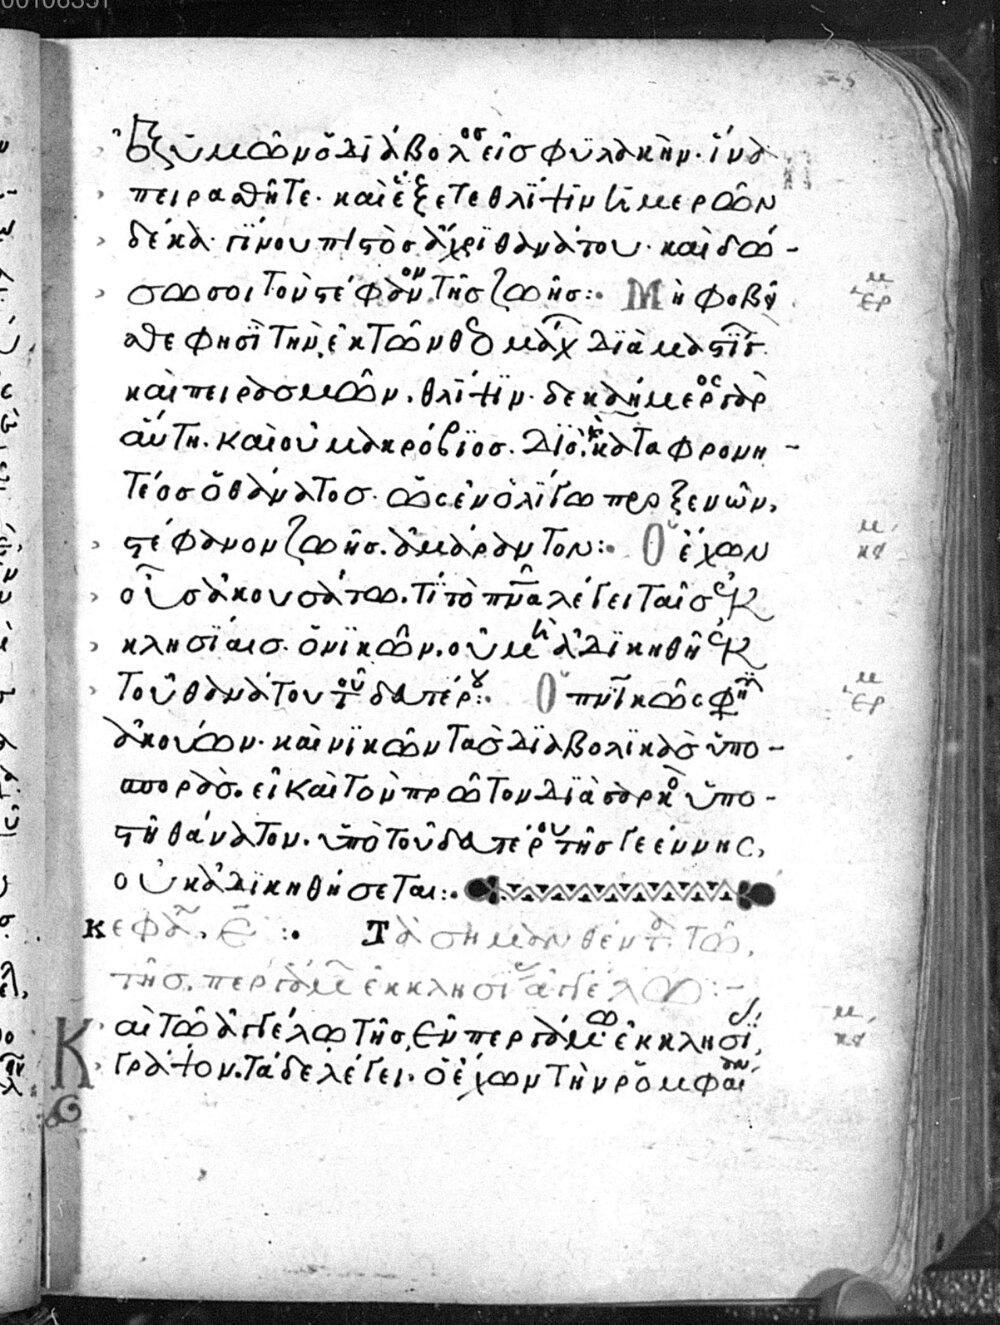 ἐξ ὑμῶν ὁ διάβολος εἰς φυλακὴν. ἵνα
πειρασθῆτε. καὶ ἕξετε θλίψιν ἡμερῶν
δέκα. γίνου πιστὸς ἄχρι θανάτου. καὶ δώ-
σω σοι τὸν στέφανον τῆς ζωῆς:. Μὴ φοβη
σθε φησὶ τὴν ἐκ τῶν θυ μαχ διὰ μαστιγ
καὶ πειρασμῶν. θλίψιν. δεκαήμερος γὰρ
αὕτη. καὶ οὐ μακρόβιος. διὸ κατα φρονη-
τέος ὁ θάνατος. ὡς ἐν ὀλίγω προξενῶν,
στέφανον ζωῆς. ἀμάραντον:. Ὁ ἔχων
οὖς ἀκουσάτω. τί τὸ πνα λέγει ταῖς ἐκ
κλησίαις. ὁ νικῶν. οὐ μὴ ἀδικηθῆ ἐκ
τοῦ θανάτου τοῦ δευτέρου:. Ὁ πνικῶς φη
ἀκούων. καὶ νικῶν τὰς διαβολικὰς ὑπο-
σποράς. εἰ καὶ τὸν πρῶτον διὰ σαρκὸ ὑπο-
στῆ θάνατον. ὑπὸ τοῦ δευτέρου τῆς γεέννης,
οὐκ ἀδικηθήσεται:.
κεφάλ. Ε :. Τὰ σημανθέντα τῶ,
τῆς περγάμ ἐκκλησί ἀγγέλω:-
Καὶ τῶ ἀγγέλω τῆς ἐν περγάμω ἐκκλησί,
γράψον. τάδε λέγει. ὁ ἔχων τὴν ῥομφαίαν